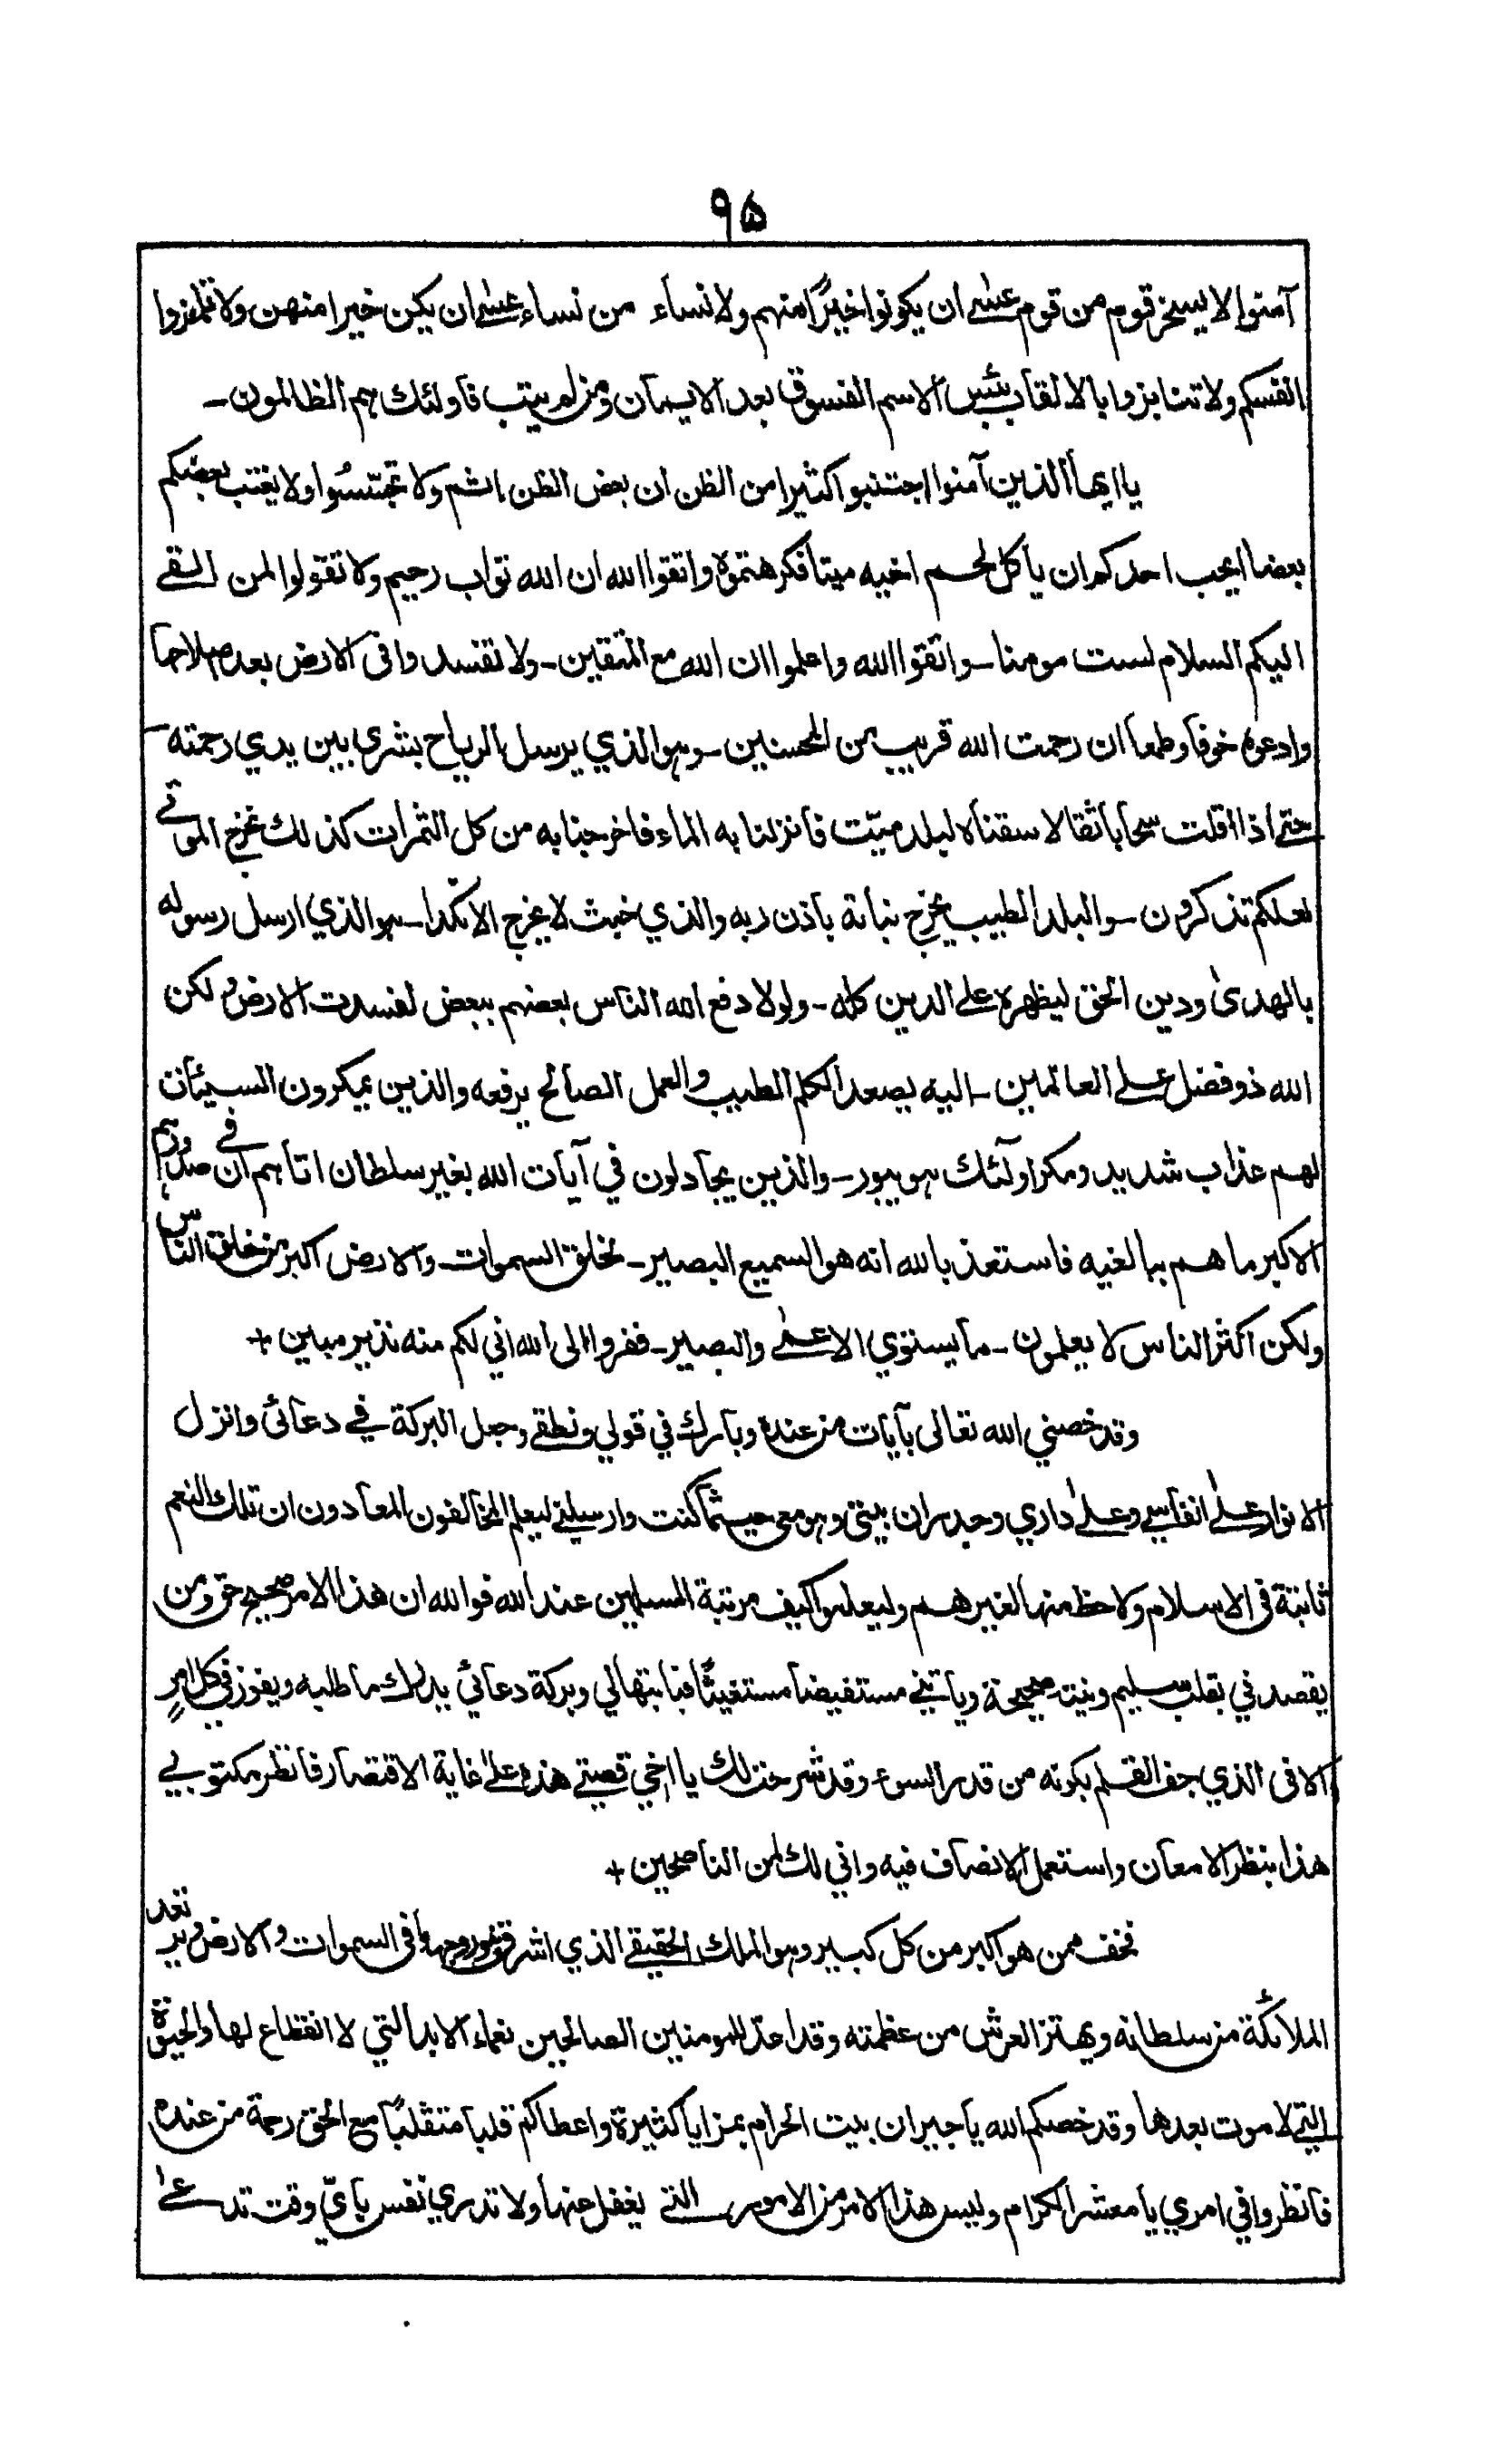 ٩٥
آمنوا لا يسخر قوم من قوم عسىٰ ان يكونوا خيرًا منهم ولا نساء من نساء عسىٰ ان يكن خيرا منهن ولا تلمزوا
انفسكم ولا تنابزوا بالالقاب بئس الاسم الفسوق بعد الايمان ومن لم يتب فاولئك هم الظالمون ـ
يا ايها الذين آمنوا اجتنبوا كثيرا من الظن ان بعض الظن اثم ولا تجسّسُوا ولا يغتب بعضكم
بعضا ايحب احدكم ان ياكل لحم اخيه ميتا فكرهتموه واتقوا الله ان الله توّاب رحيم ولا تقولوا لمن القے
اليكم السلام لست مومنا ـ واتقوا الله واعلموا ان الله مع المتقين ـ ولا تفسدوا فى الارض بعد اصلاحها
وادعوه خوفا وطمعا ان رحمت الله قريب من المحسنين ـ وهو الذي يرسل الرياح بشرى بين يدي رحمته
حتے اذا اقلت سحابا ثقالا سقناه لبلد ميّت فانزلنا به الماء فاخرجنا به من كل الثمرات كذلك نخرج الموتے
لعلكم تذكرون ـ والبلد الطيب يخرج نباته باذن ربه والذي خبث لا يخرج الا نكّدا ـ هو الذي ارسل رسوله
بالهدىٰ ودين الحق ليظهره علے الدين كله ـ ولولا دفع الله الناس بعضهم ببعض لفسدت الارض ولكن
الله ذو فضل علے العالمين ـ اليه يصعد الكلم الطيب والعمل الصالح يرفعه والذين يمكرون السيئات
لهم عذاب شديد ومكر اولئك هو يبور ـ والذين يجادلون في آيات الله بغير سلطان اتاهم ان في صدورهم
الا كبر ما هم ببالغيه فاستعذ بالله انه هو السميع البصير ـ لخلق السموات والارض اكبر من خلق الناس
ولكن اكثر الناس لا يعلمون ـ ما يستوي الاعمےٰ والبصير ـ ففروا الى الله اني لكم منه نذير مبين +
وقد خصني الله تعالى بآيات من عنده وبارك في قولي ونطقے وجعل البركة في دعائى وانزل
الانوار علےٰ انفاسے وعلےٰ داري وجدران بيتى وهو معى حيثما كنت وارسلنے ليعلم المخالفون المعادون ان تلك النعم
ثابتة فى الاسلام ولا حظ منها لغيرهم وليعلموا كيف مرتبة المسلمين عند الله فوالله ان هذا الامر صحيح حق ومن
يقصدني بقلب سليم ونيت صحيحة وياتينے مستفيضا مستغيثًا فبابتهالي وبركة دعائي يدرك ما طلبه ويفوز فى كل امرٍ
الا فى الذي جف القلم بكونه من قدر السوء وقد شرحت لك يا اخي قصتے هذه علےٰ غاية الاقتصار فانظر مكتوبے
هذا بنظر الامعان واستعمل الانصاف فيه واني لك لمن الناصحين +
فخف ممن هو اكبر من كل كبير وهو الملك الحقيقے الذي اشرق نور وجهه فى السموات والارض وترتعد
الملائكة من سلطانه ويهتز العرش من عظمته وقد اعدّ للمومنين الصالحين نعماء الابد التي لا انقطاع لها والحيٰوة
التے لا موت بعدها وقد خصكم الله يا جيران بيت الحرام بمزايا كثيرة واعطاكم قلبا متقلبًا مع الحق رحمة من عنده
فانظروا في امري يا معشر الكرام وليس هذا الامر من الامور التے يغفل عنها ولا تدري نفس بايّ وقت تدعےٰ